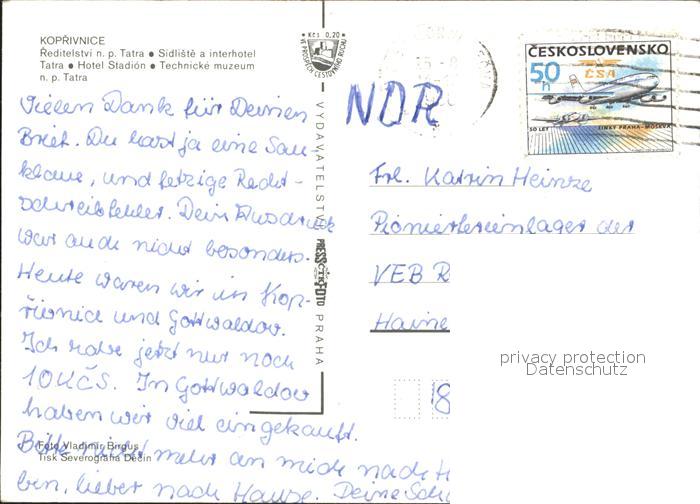 KOPŘIVNICE
Ředitelství n. p. Tatra • Sídliště a interhotel
Tatra • Hotel Stadión • Technické muzeum
n. p. Tatra
Kčs 0,20
VE PROSPĚCH CESTOVNÍHO RUCHU
ČESKOSLOVENSKO
50 h
ČSA
50 LET LINKY PRAHA-MOSKVA
NDR
Vielen Dank für Deinen
Brief. Du hast ja eine Sau-
klaue, und fetzige Recht-
schreibfehler. Dein Ausdruck
war auch nicht besonders.
Heute waren wir in Kop-
řivnice und Gottwaldov.
Ich habe jetzt nur noch
10KČS. In Gottwaldov
haben wir viel eingekauft.
Bitte nicht mehr an mich nach H
ben, lieber nach Hause. Deine Sch
VYDAVATELSTVÍ PRESSFOTO PRAHA
Frl. Katrin Heinze
Pionierferienlager der
VEB R
Haine
18
Foto Vladimír Birgus
Tisk Severografia Děčín
privacy protection
Datenschutz